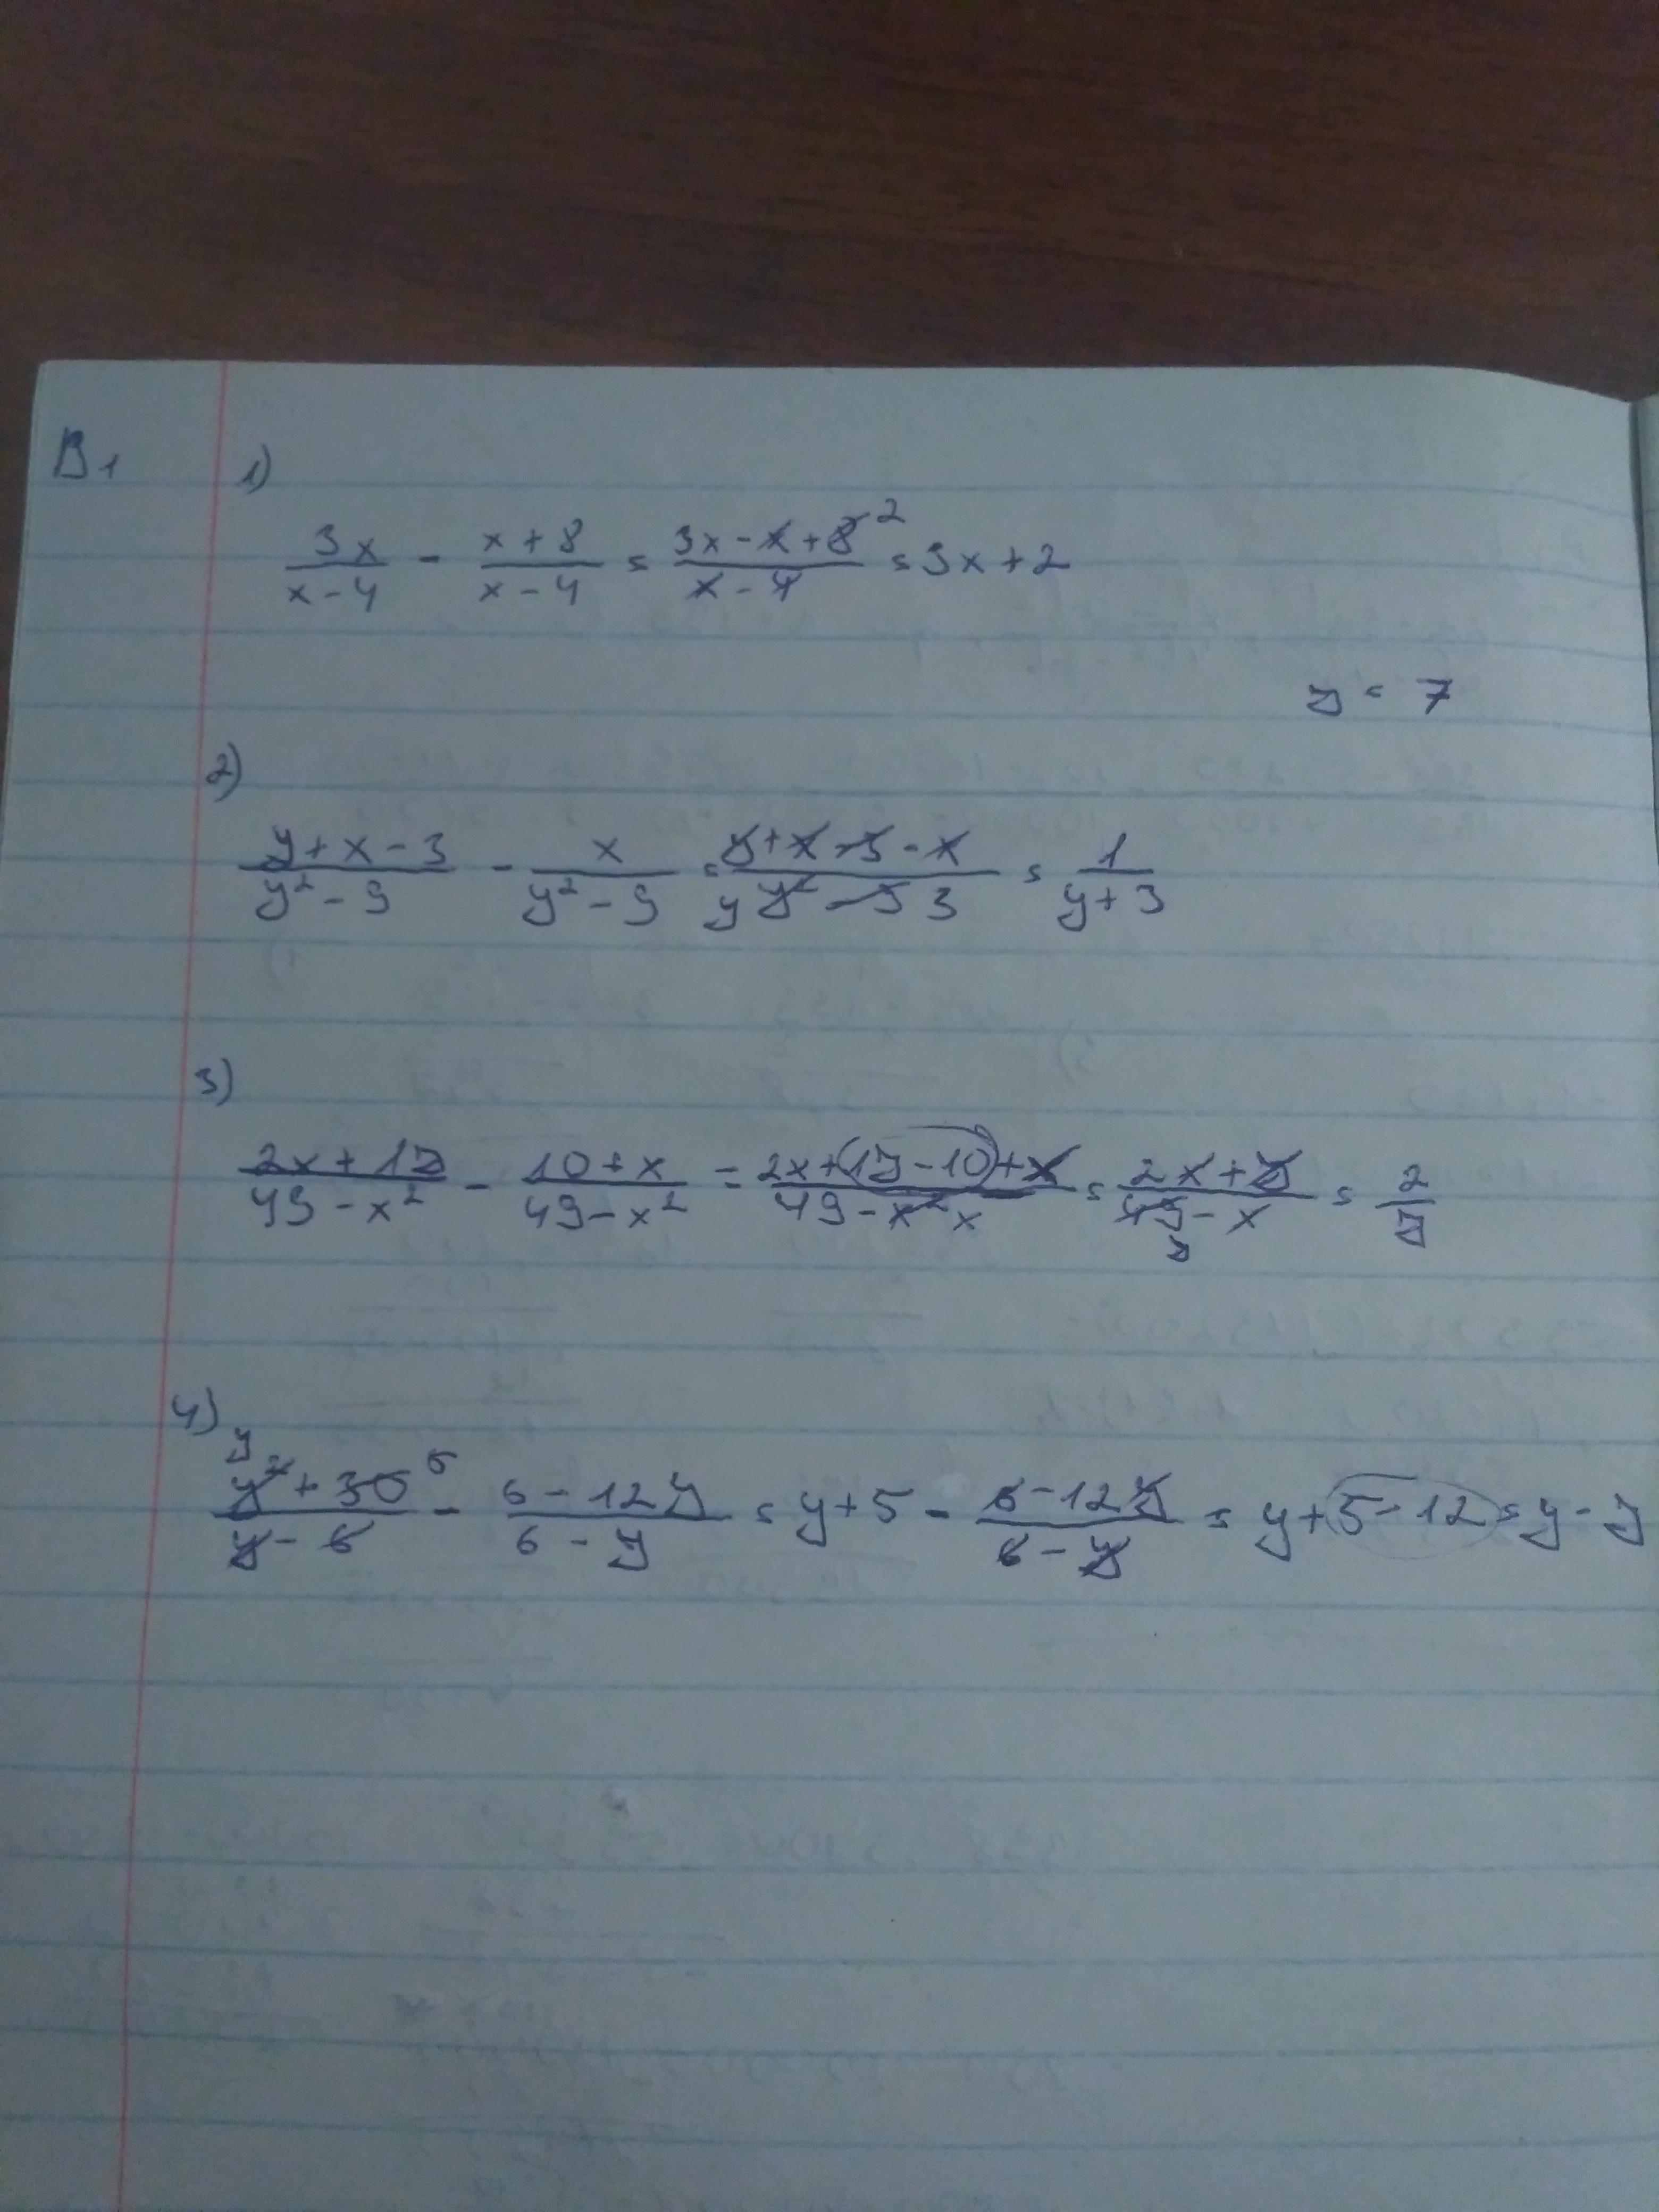 В1
1)
3x/(x-4) - (x+8)/(x-4) = (3x-x+8 2)/(x-4) = 3x+2
7 = 7
2)
(y+x-3)/(y²-9) - x/(y²-9) = (y+x-3-x)/(y y²-9 3) = 1/(y+3)
3)
(2x+17)/(49-x²) - (10+x)/(49-x²) = (2x+(17-10)+x)/(49-x² x) = (2x+7)/(49-x) 7 = 2/7
4)
y (y²+30 5)/(y-6) - (6-12y)/(6-y) = y+5 - (6-12y)/(6-y) = y+5-12 = y-7